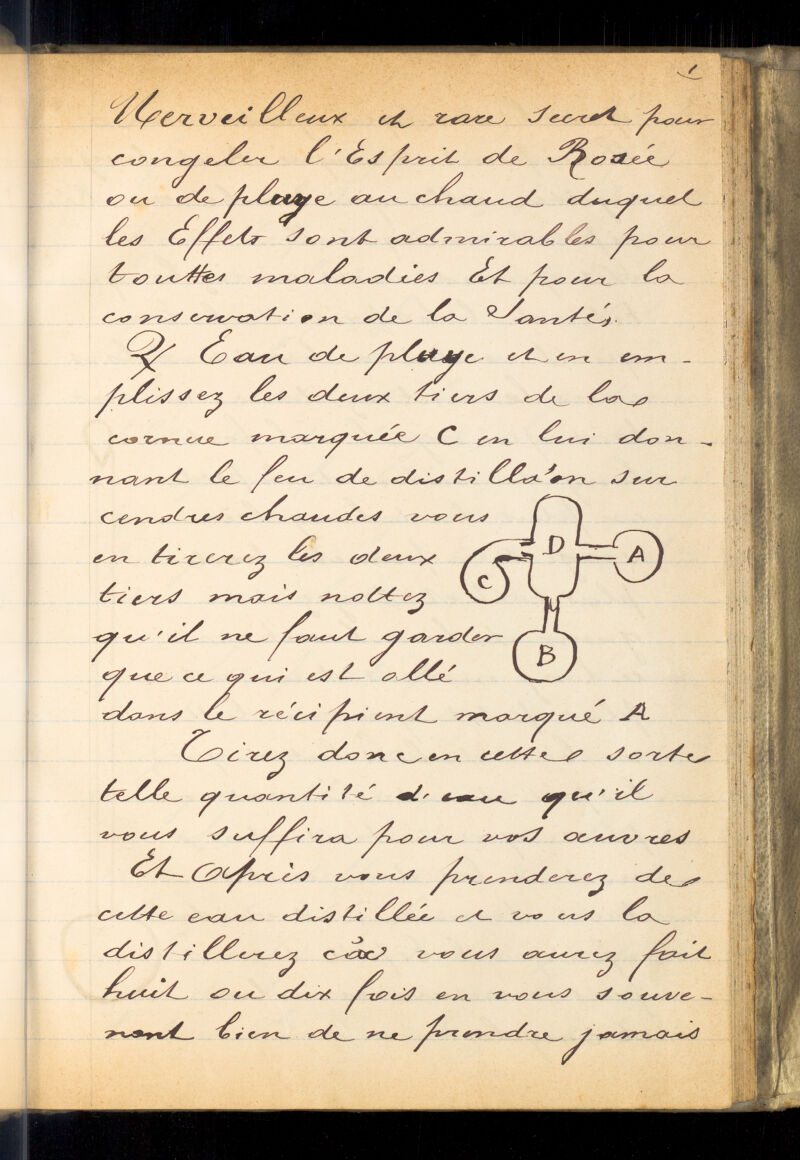 1
Merveilleux et rare secret pour
congeler l'Esprit de Rosée
ou de pluye au chaud duquel
les Effets sont admirables pour
touttes maladies Et pour la
conservation de la Santés.
♃ Eau de pluye et en em-
plissez les deux tiers de la
cornue marquée C en lui don-
nant le feu de distilla'on sur
cendres chaudes vous
en tirerez les deux
tiers mais nottez
qu'il ne faut garder
que ce qui est allé
dans le récipient marqué A
D
A
C
B
Tirez donc en cette sorte
telle quantité d'eau qu'il
vous suffira pour vos œuvres
Et Après vous prenderez de
cette eau distillée et vous la
distillerez vous aurez fait
huit ou dix fois en vous souve-
nant bien de ne prendre jamais